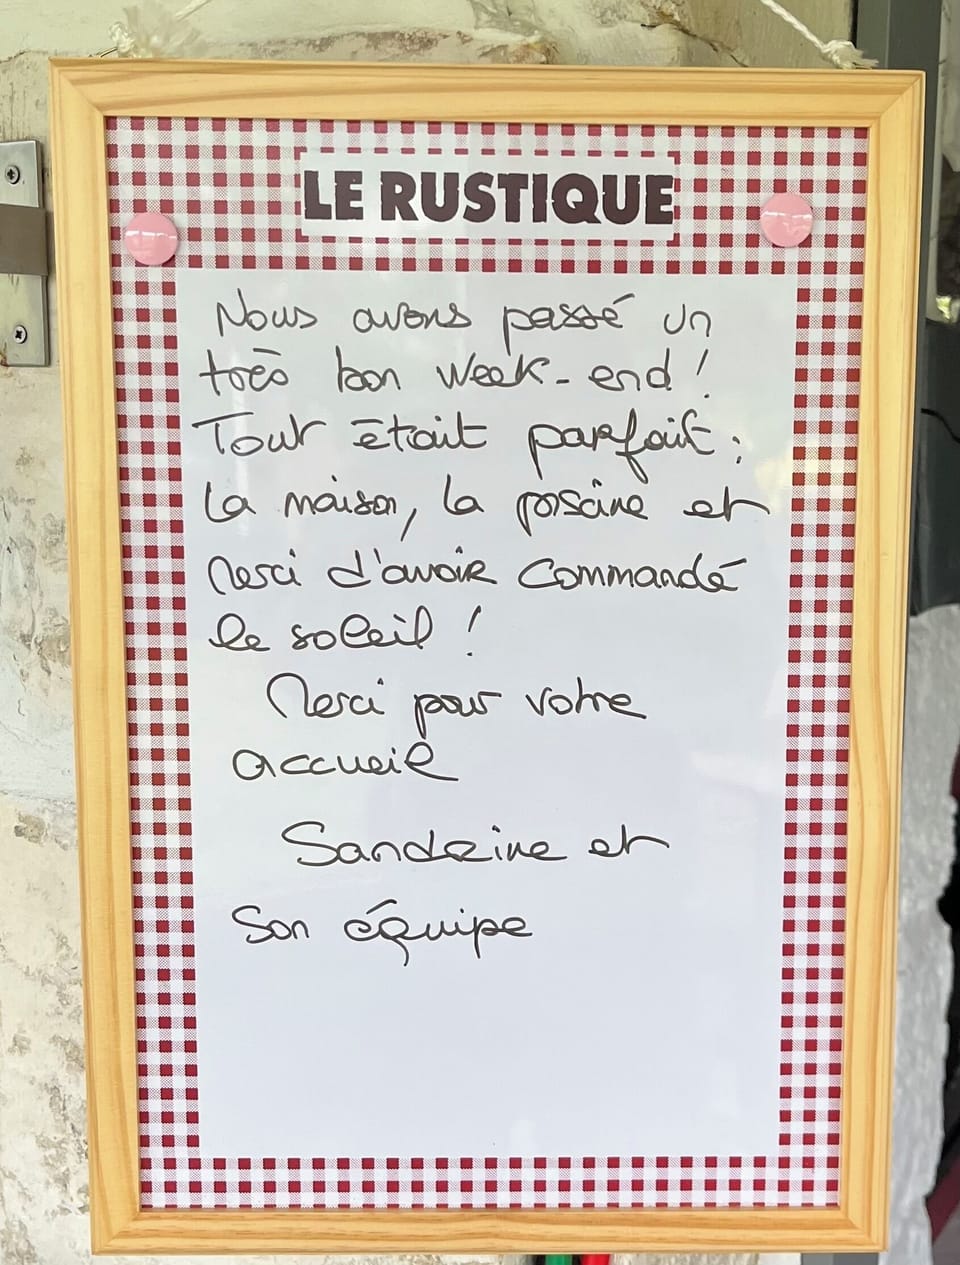 LE RUSTIQUE
Nous avons passé un
très bon week-end !
Tout était parfait :
la maison, la piscine et
merci d'avoir commandé
le soleil !
Merci pour votre
accueil
Sandrine et
Son équipe